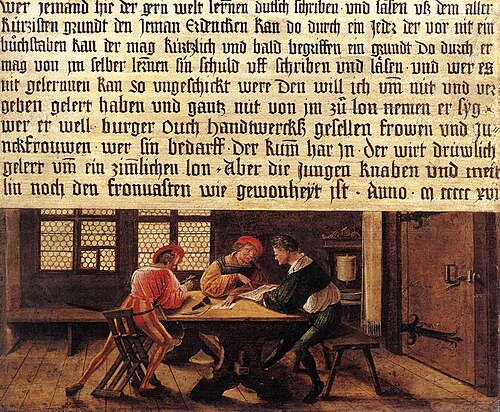 wer jemand hie der gern welt lernen dutsch schriben und läsen uß dem aller
kürzisten grundt den jeman erdencken kan do durch ein jeder der vor nit ein
büchstaben kan der mag kürtzlich und bald begriffen ein grundt do durch er
mag von jm selber lernen sin schuld uff schriben und läsen und wer es
nit gelernnen kan so ungeschickt were den will ich umm nüt und ver
geben gelert haben und gantz nüt von jm zů lon nemen er syg
wer er well burger ouch handtwercks gesellen frowen und ju
nckfrouwen wer sin bedarff der kumm har jn der wirt drüwlich
gelert umm ein zimlichen lon · aber die jungen knaben und meit
lin noch den fronuasten wie gewonheyt ist · anno · m ccccc xvi